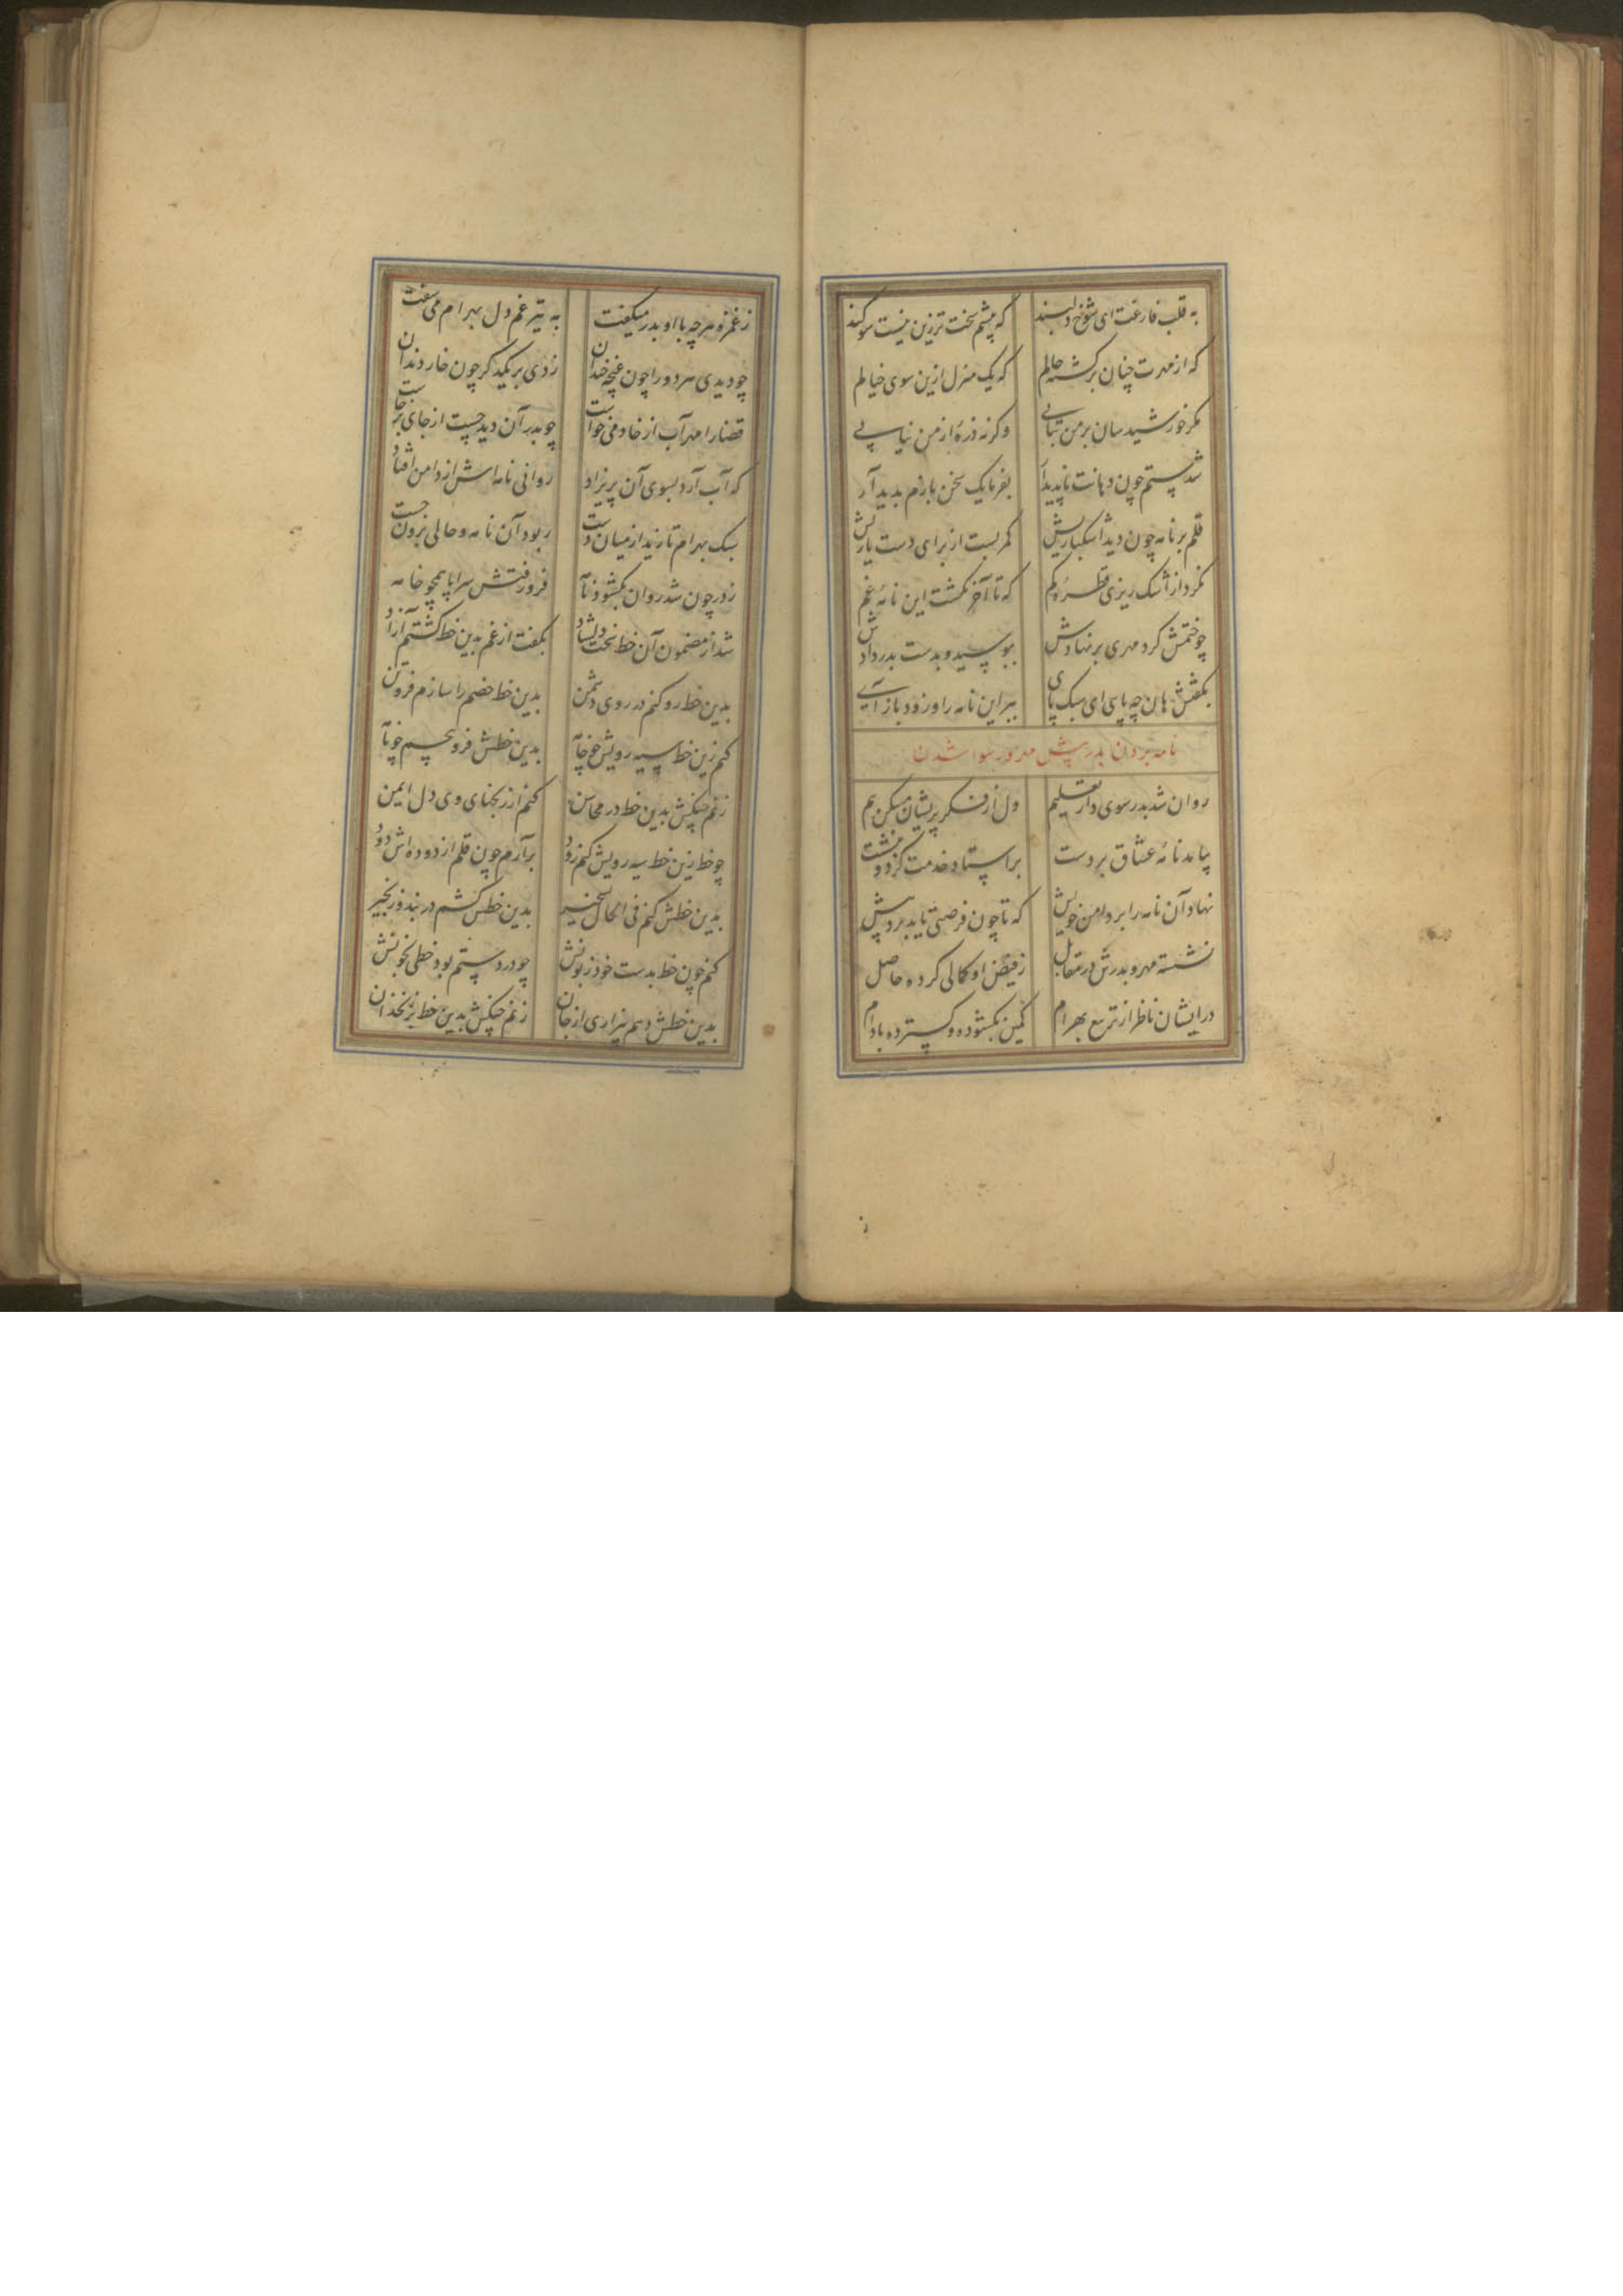 به قلب فارغت ای شوخ دلبند که پیشم سخت ترزین نیست سوکند
که از مهرت چنان برکشته حالم که یک منزل ازین سوی خیالم
مکر خورشید سان بر من بتابی وکرنه ذرهٔ از من نیابی
شد پستم چون دهانت ناپدیدار بفرما یک سخن بازم بدید آر
قلم بر نامه چون دید اشکباریش کمر بست از برای دست یاریش
نکرد از اشک ریزی قطرهٔ کم که تا آخر نکشت این نامهٔ غم
چو ختمش کرد مهری بر نهادش ببوسید و بدست بدر دادش
بکفتش هان چه پایی ای سبک پای ببر این نامه را و زود باز آیی
نامه بردن بدر پیش مهر و رسوا شدن
روان شد بدر سوی دار تعلیم دل از فکر پریشان مسکن بیم
بیامد نامهٔ عشاق بر دست بر استاد خدمت کرد و بنشست
نهاد آن نامه را بر دامن خویش که تا چون فرصتی یابد برد پیش
نشسته مهر و بدرش در مقابل ز فیض او کمالی کرده حاصل
در ایشان ناظر از تربیع بهرام کمین بکشوده و کسترده بادام
ز غمزه مهر چه با او بدر میکفت به تیر غم دل بهرام می سفت
چو دیدی هر دو را چون غنچه خندان زدی بر یکدکر چون خار دندان
قضا را مهر آب از خادمی خواست چو بدر آن دید چست از جای برخاست
که آب آرد بسوی آن پریزاد روانی نامه اش از دامن افتاد
سبک بهرام تازید از میان دست ربود آن نامه و حالی برون جست
ز در چون شد روان بکشود نامه فرو رفتش سراپا همچو خامه
شد از مضمون آن خط سخت دلشاد بکفت از غم بدین خط کشتم آزاد
بدین خط رو کنم در روی دشمن بدین خط خصم را سازم فروتن
کنم زین خط سیه رویش چو خامه بدین خطش فرو پیچم چو نامه
زنم چنکش بدین خط در محاسن کنم از زیجنای وی دل ایمن
چو خط زین خط سیه رویش کنم زود برآرم چون قلم از دوده اش دود
بدین خطش کنم فی الحال تسخیر بدین خطش کشم در بند و زنجیر
کنم چون خط بدست خود زبونش چو در دستم بود خطی بخونش
بدین خطش دهم بیزاری از جان زنم چنکش بدین خط بر زنخدان